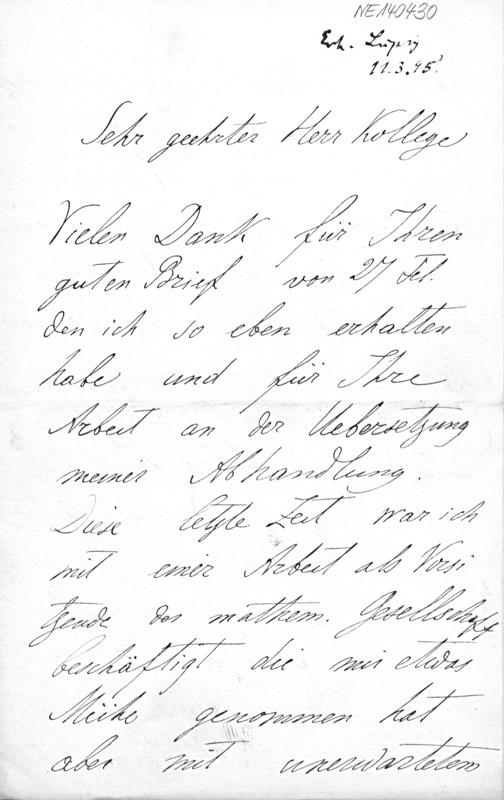 NE140430
Erh. Leipzig
11.3.95.
Sehr geehrter Herr Kollege
Vielen Dank für Ihren
guten Brief von 27 Feb.
den ich so eben erhalten
habe und für Ihre
Arbeit an der Uebersetzung
meiner Abhandlung.
Diese letzte Zeit war ich
mit einer Arbeit als Vorsi
tzende der mathem. Gesellschaft
beschäftigt die mir etwas
Mühe genommen hat
aber mit unerwartetem